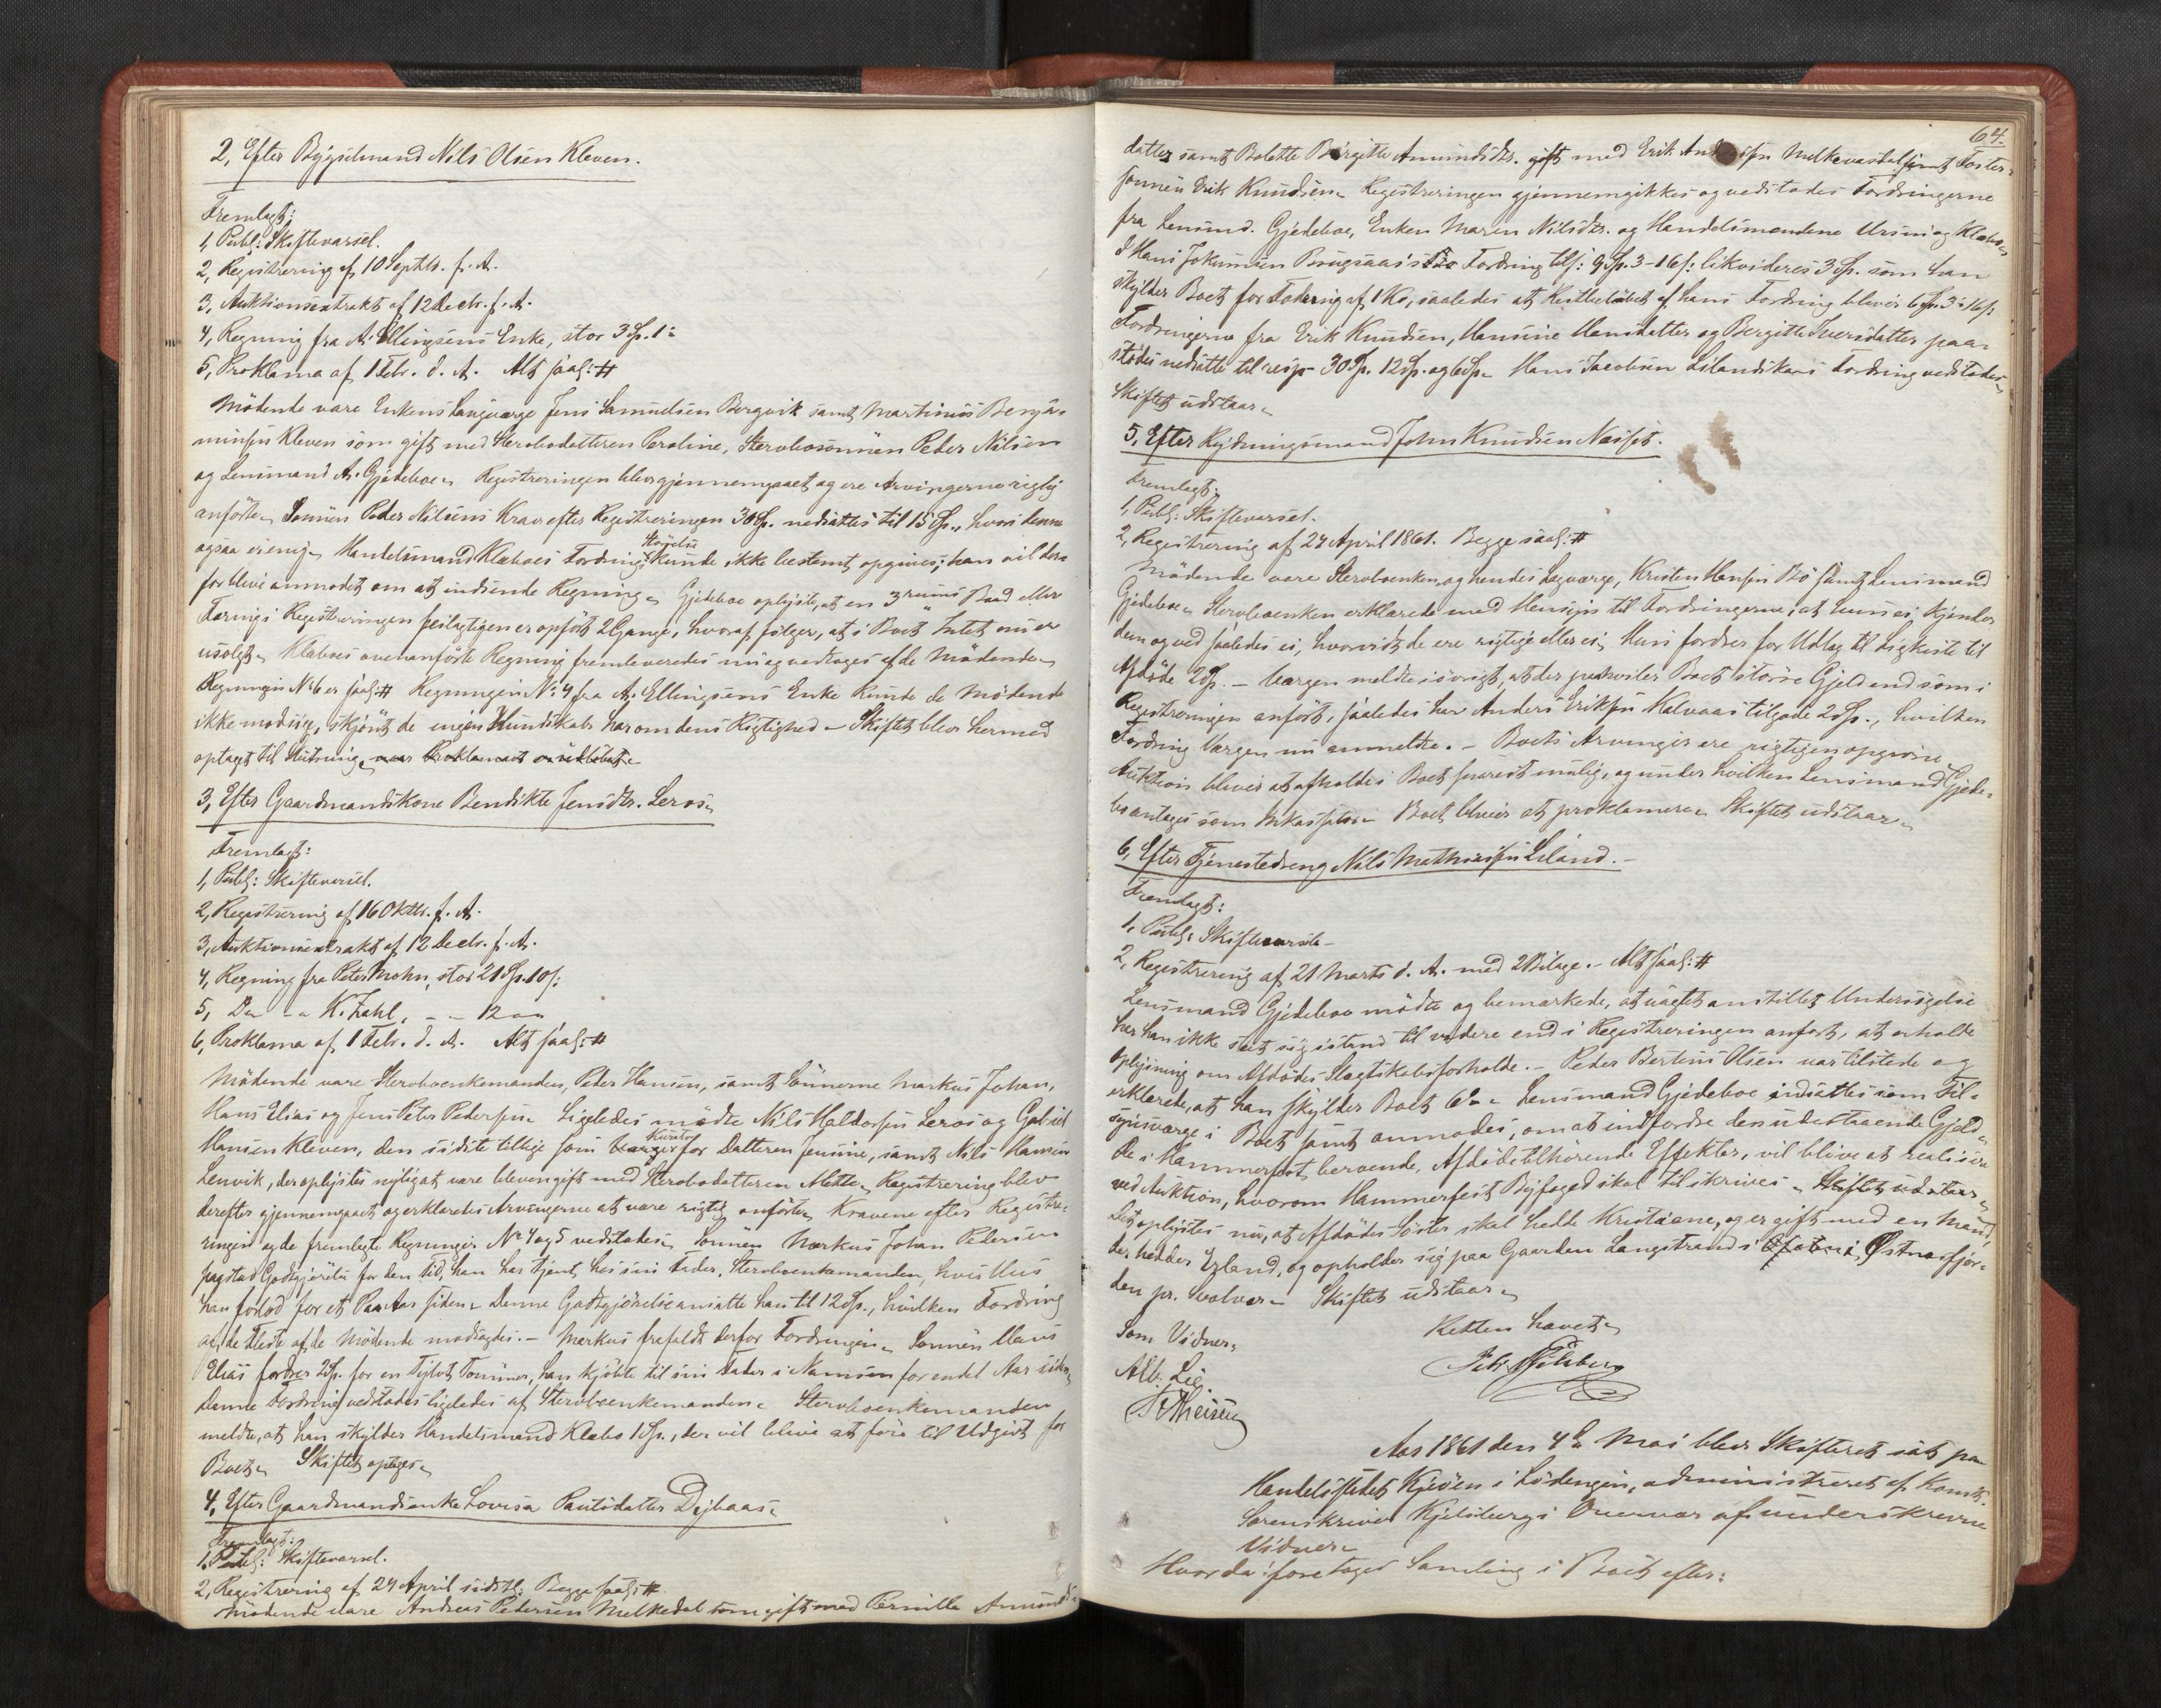 2, Efter Bygselmand Nils Olsen Kleven.
Fremlagt:
1, Publ: Skiftevarsel.
2, Registrering af 10 Septbr. f. A.
3, Auktionsextrakt af 12 Decbr. f. A.
4, Regning fra A. Ellingsens Enke, stor 3 Sp. 1
5, Proklama af 1 Febr. d. A. Alt saal: #
Mødende vare Enkens Laugværge Jens Samuelsen Bergvik samt Martinus Benja-
minsen Kleven som gift med Stervbodatteren Peroline, Stervbosønnen Peder Nilsen
og Lensmand A. Gjedeboe. Registreringen blev gjennemgaaet og ere Arvingerne rigtig
anførte. Sønnen Peder Nilsens Krav efter Registreringen 30 Sp. nedsattes til 15 Sp., hvori denne
ogsaa er enig. Handelsmand Klæboes Fordrings Størrelse kunde ikke bestemt opgives; han vil der-
for blive anmodet om at indsende Regning. Gjedeboe oplyste, at en 3 rums Baad eller
Færing i Registreringen feilagtigen er opført 2 Gange, hvoraf følger, at i Boet Intet nu er
usolgt. Klæboes ovenanførte Regning fremleveredes nu og vedtoges af de Mødende.
Regningen No 6 er saal: # Regningen No 4 fra A. Ellingsens Enke kunde de Mødende
ikke modsige, skjønt de ingen Kundskab har om dens Rigtighed. Skiftet blev hermed
optaget til Slutning, naar Proklamaet er udløbet.
3, Efter Gaardmandskone Bendikte Jensdtr. Leros.
Fremlagt:
1, Publ: Skiftevarsel.
2, Registrering af 16 Oktbr. f. A.
3, Auktionsextrakt af 12 Decbr. f. A.
4, Regning fra Peter Mohn, stor 21 Sp. 10 s:
5, Do - K. Zahl, - - 12
6, Proklama af 1 Febr. d. A. Alt saal: #
Mødende vare Stervboenkemanden, Peder Hansen, samt Sønnerne Markus Johan,
Hans Elias og Jens Peter Pedersen. Ligeledes mødte Nils Haldorsen Leros og Gabriel
Hansen Kleven, den sidste tillige som Værge Kurator for Datteren Jensine, samt Nils Hansen
Lenvik, der oplystes nyligst være bleven gift med Stervbodatteren Mette. Registrering blev
derefter gjennemgaaet og erklæredes Arvingerne at være rigtig anførte. Kravene efter Registre-
ringen og de fremlagte Regninger No 4 og 5 vedtodes. Sønnen Markus Johan Pedersen
paastod Godtgjørelse for den Tid, han har tjent hos sin Fader, Stervboenkemanden, hvis Hus
han forlod for et Par Aar siden. Denne Godtgjørelse ansatte han til 12 Sp., hvilken Fordring
af de Fleste af de Mødende modsagdes. - Markus frafaldt derfor Fordringen. Sønnen Hans
Elias fordrer 2 Sp. for en Tylvt Tømmer, han kjøbte til sin Fader i Namsen for endel Aar siden.
Denne Fordring vedtodes ligeledes af Stervboenkemanden. Stervboenkemanden
meldte, at han skylder Handelsmand Klæbo 10 Sp., der vil blive at føre til Udgivt for
Boet. Skiftet optages.
4, Efter Gaardmandsenke Lovisa Paulsdatter Dejbaas.
Fremlagt:
1. Publ: Skiftevarsel.
2, Registrering af 24 April sidstl: Begge saal: #
Mødende vare Andreas Pedersen Melkedal som gift med Pernille Amunds-
64.
datter samt Bolette Birgitte Amundsdtr. gift med Erik Andersen Melkevardal samt Foster-
sønnen Erik Knudsen. Registreringen gjennemgikkes og vedtodes Fordringerne
fra Lensmd. Gjedeboe, Enken Maren Nilsdtr. og Handelsmændene Ursin og Klæbo.
I Hans Jokumsen Brugsaas's Fordring tils: 9 Sp. 3 - 16 s: likvideres 3 Sp. som han
skylder Boet for Fodering af 1 Ko, saaledes at Restbeløbet af hans Fordring bliver 6 Sp. 3 - 16 s:
Fordringerne fra Erik Knudsen, Hansine Hansdatter og Bergitte Sversdatter paa-
stodes nedsatte til resp. 30 Sp. 12 Sp. og 6 Sp. Hans Jacobsen Lilandskars Fordring vedtodes.
Skiftet udstaar.
5, Efter Rydningsmand John Knudsen Næsset.
Fremlagt:
1, Publ: Skiftevarsel.
2, Registrering af 24 April 1861. Begge saal: #
Mødende vare Stervboenken, og hendes Laugværge, Kristen Hansen Bø samt Lensmand
Gjedeboe. Stervboenken erklærede med Hensyn til Fordringerne, at hun ei kjender
dem og ved saaledes ei, hvorvidt de ere rigtige eller ei. Hun fordrer for Udlæg til Ligkiste til
Afdøde 2 Sp. - Værgen meldte iøvrigt, at der paahviler Boet større Gjeld end som i
Registreringen anført, saaledes har Anders Eriksen Kalvaas tilgode 2 Sp., hvilken
Fordring Værgen nu anmeldte. - Boets Arvinger ere rigtigen opgivne.
Auktion bliver at afholde i Boet snarest mulig, og under hvilken Lensmand Gjede-
bo antages som Inkassator. Boet bliver at proklamere. Skiftet udstaar.
6, Efter Tjenestedreng Nils Mathisen Liland. -
Fremlagt:
1, Publ: Skiftevarsel.
2, Registrering af 21 Marts d. A. med 2 Bilage. - Alt saal: #
Lensmand Gjedeboe mødte og bemærkede, at uagtet anstillet Undersøgelse
har han ikke seet sig istand til videre end i Registreringen anført, at erholde
Oplysning om Afdødes Slægtskabsforholde. - Peder Bertinus Olsen var tilstede og
erklærede, at han skylder Boet 6 Lensmand Gjedeboe indsattes som Til-
synsværge i Boet samt anmodes, om at indfordre den udestaaende Gjeld.
De i Hammerfest beroende, Afdøde tilhørende Effekter, vil blive at realisere
ved Auktion, hvorom Hammerfest Byfoged skal tilskrives. Skiftet udstaar.
Det oplystes nu, at Afdødes Søster skal hedde Kristiane, og er gift med en Mand,
der hedder Erland, og opholder sig paa Gaarden Langstrand i Ofoten i Østnæsfjor-
den pr. Svolvær. Skiftet udstaar.
Som Vidner, Retten hævet.
Alb. Lie.
Aar 1861 den 4de Mai blev Skifteret sat paa
Handelsstedet Kjeøen i Lødingen, administreret af Konst.
Sorenskriver Kjelsberg i Overvær af underskrevne
Vidner.
Hvorda foretoges Samling i Boet efter: